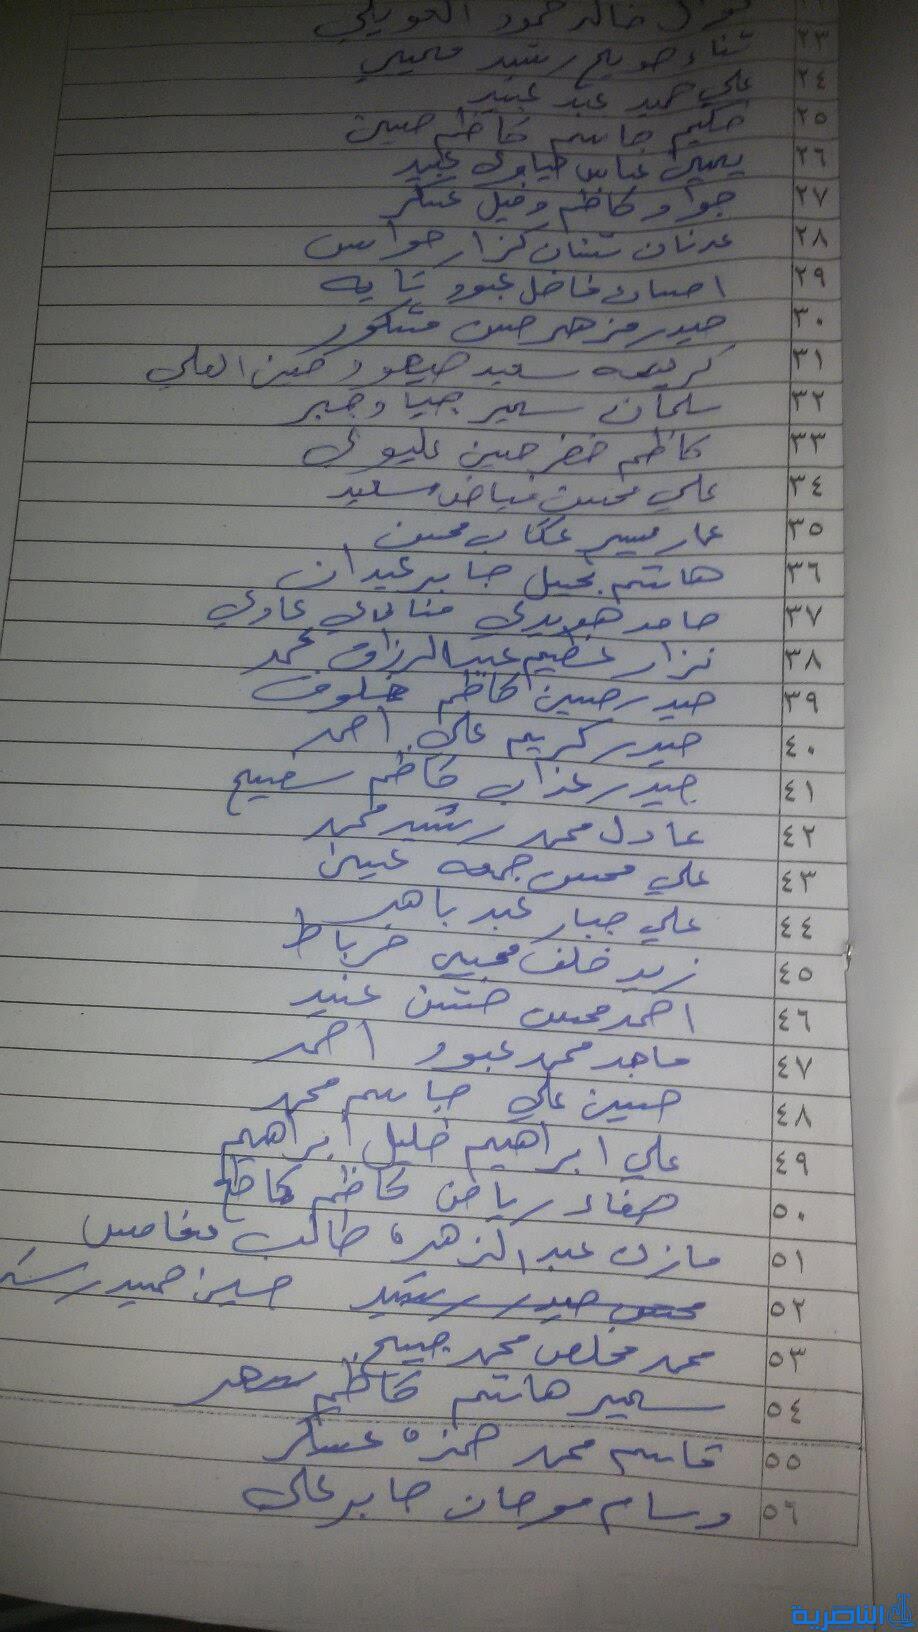 خالد حمود العويلي
٢٣ ثناء صويح رشيد محيي
٢٤ علي حميد عبد عبيد
٢٥ حكيم جاسم كاظم حسين
٢٦ عباس عبيد
٢٧ جواد كاظم دخيل عسكر
٢٨ عدنان شنان كزار حواس
٢٩ احسان فاضل عبود
٣٠ حيدر مزهر حسن مشكور
٣١ كريمه سعيد صيهود حسن العلي
٣٢ سلمان سمير جياد جبر
٣٣ كاظم خضر حسين عليوي
٣٤ علي محسن فياض سعيد
٣٥ عمار عكاب محسن
٣٦ هاشم جابر عيدان
٣٧ حامد هويدي عاوي
٣٨ نزار عظيم عبد الرزاق محمد
٣٩ حيدر حسين كاظم
٤٠ حيدر كريم علي احمد
٤١ حيدر عذاب كاظم سفيح
٤٢ عادل محمد رشيد محمد
٤٣ علي محسن جمعه
٤٤ علي جبار عبد باهر
٤٥ زيد خلف محيي خرباط
٤٦ احمد محسن عنيد
٤٧ ماجد محمد عبود احمد
٤٨ حسين علي جاسم محمد
٤٩ علي ابراهيم خليل ابراهيم
٥٠ صفاء رياض كاظم كاطع
٥١ مازن عبد الزهره طالب مغامس
٥٢ محسن حيدر رشيد حسين حميد
٥٣ محمد مخلص محمد
٥٤ سمير هاشم كاظم
٥٥ قاسم محمد حمزه عسكر
٥٦ وسام موحان جابر علي
الناصرية